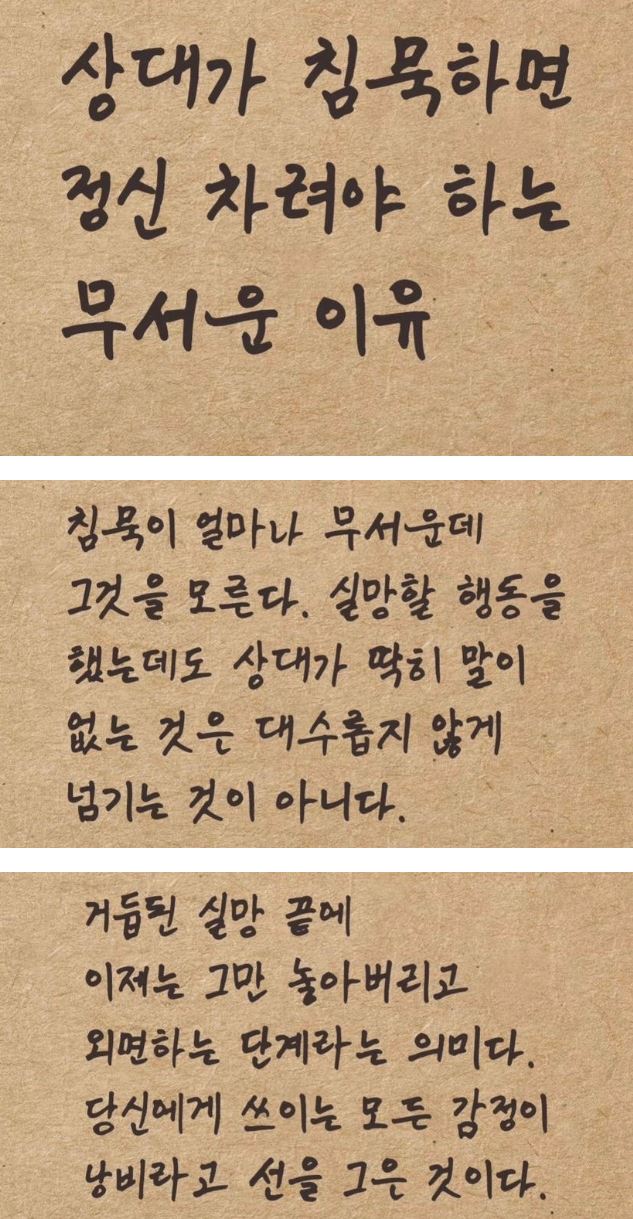 상대가 침묵하면
정신 차려야 하는
무서운 이유
침묵이 얼마나 무서운데
그것을 모른다. 실망할 행동을
했는데도 상대가 딱히 말이
없는 것은 대수롭지 않게
넘기는 것이 아니다.
거듭된 실망 끝에
이제는 그만 놓아버리고
외면하는 단계라는 의미다.
당신에게 쓰이는 모든 감정이
낭비라고 선을 그은 것이다.